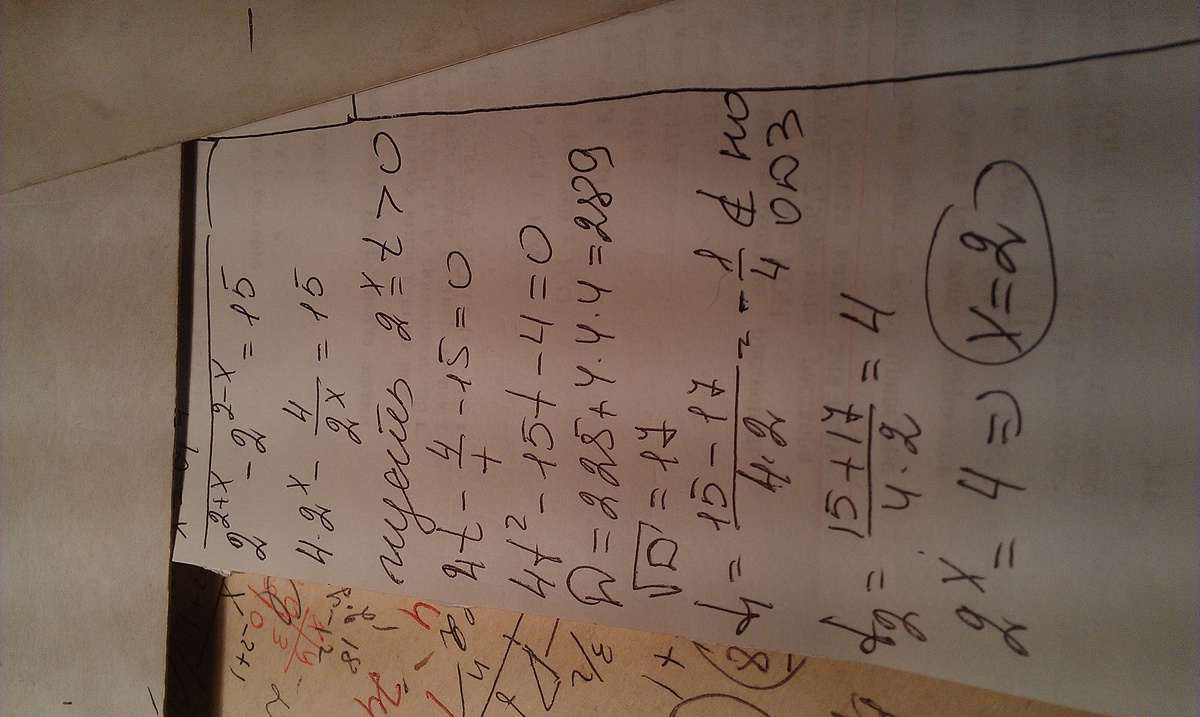 2^{2+x} - 2^{2-x} = 15
4·2^x - 4/2^x = 15
пусть 2^x = t > 0
4t - 4/t - 15 = 0
4t² - 15t - 4 = 0
D = 225 + 4·4·4 = 289
√D = 17
t₁ = (15 - 17)/(4·2) = -1/4 ∉ по ОДЗ
t₂ = (15 + 17)/(4·2) = 4
2^x = 4 ⇒ x = 2